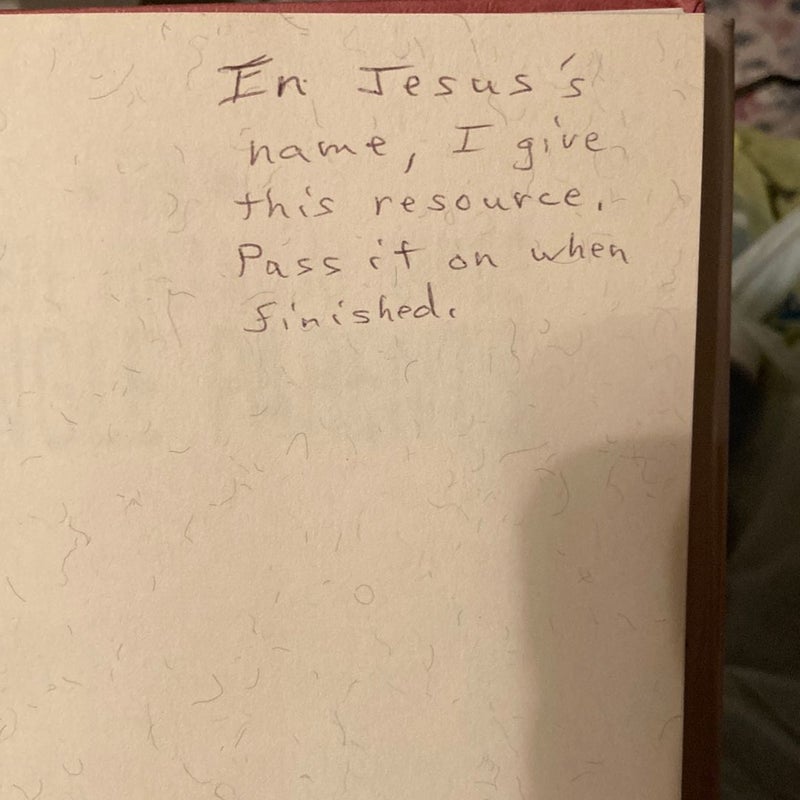 In Jesus's
name, I give
this resource.
Pass it on when
finished.